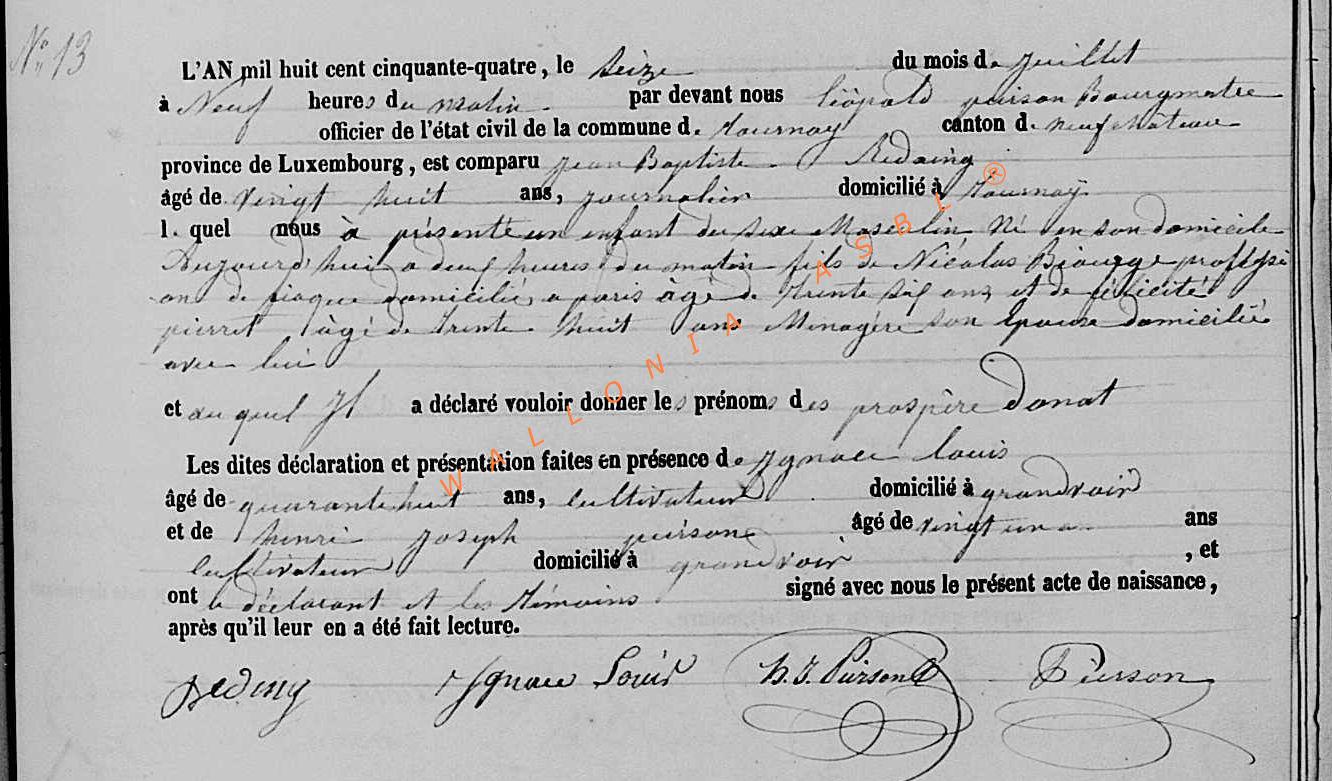 N° 13
L'AN mil huit cent cinquante-quatre, le seize du mois de juillet
à Neuf heures du matin par devant nous léopold puirson Bourgmetre
officier de l'état civil de la commune de tournay canton de neufchâteau
province de Luxembourg, est comparu jean Baptiste Redaing
âgé de vingt huit ans, journalier domicilié à tournay
lequel nous à présenté un enfant du sexe Masculin Né en son domicile
Aujourd'hui a deux heures du matin fils de Nicolas Biourge professi
on de domicilié a paris âgé de trente six ans et de félicité
pierret âgé de trente huit ans Menagère son épouse domicilié
avec lui
et au quel Il a déclaré vouloir donner les prénoms des prospère Donat
Les dites déclaration et présentation faites en présence de Ignace louis
âgé de quarante huit ans, cultivateur domicilié à grandvoir
et de henri joseph puirson âgé de vingt un ans
cultivateur domicilié à grandvoir, et
ont le déclarant et les témoins signé avec nous le présent acte de naissance,
après qu'il leur en a été fait lecture.
Ignace Louis H. J. Puirson Pierson
WALLONIA ASBL ®